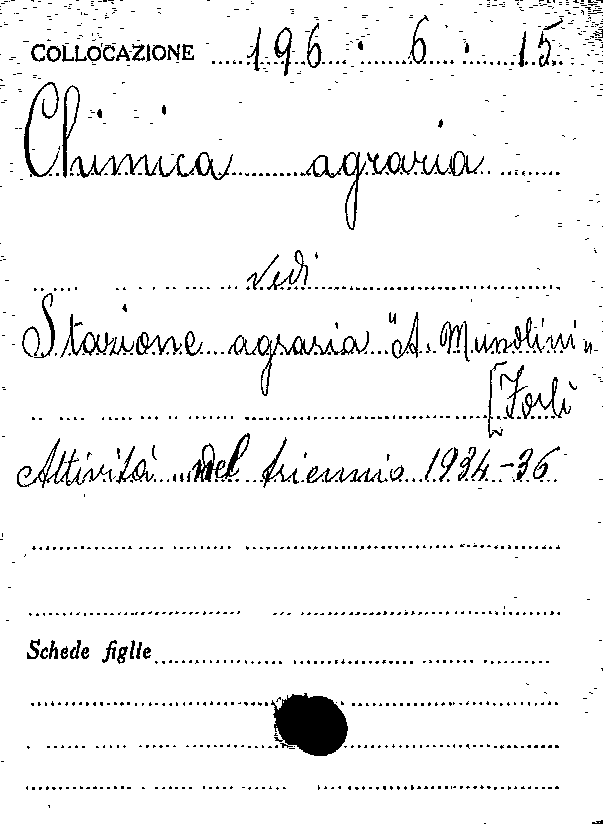 COLLOCAZIONE 196 . 6 . 15
Chimica agraria
vedi
Stazione agraria "A. Mussolini"
[Forlì
Attività nel triennio 1934-36
Schede figlie